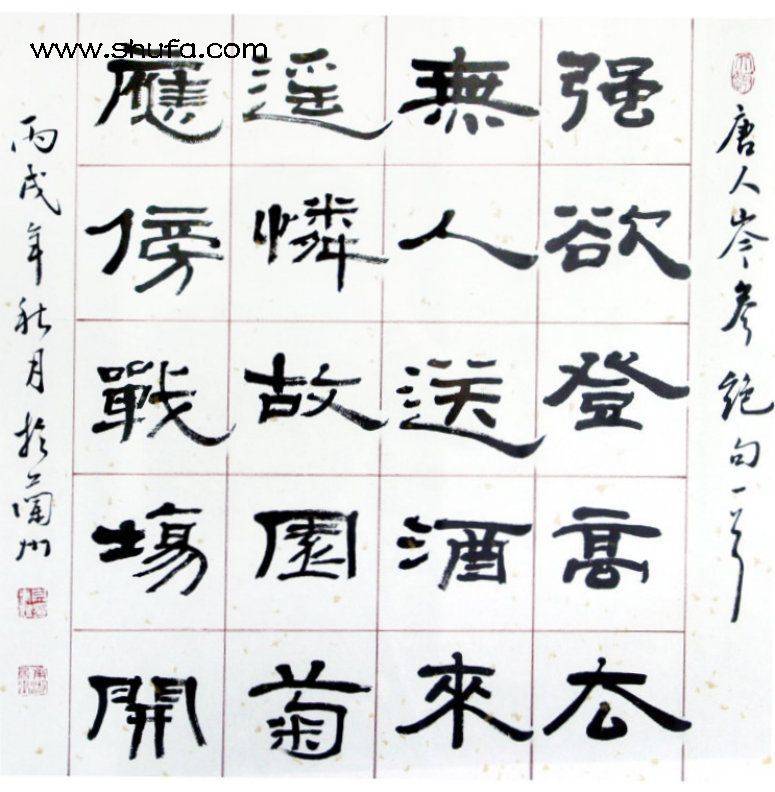 www.shufa.com
唐人岑参絕句一首
强欲登高去
無人送酒來
遥憐故園菊
應傍戰場開
丙戌年秋月於蘭州